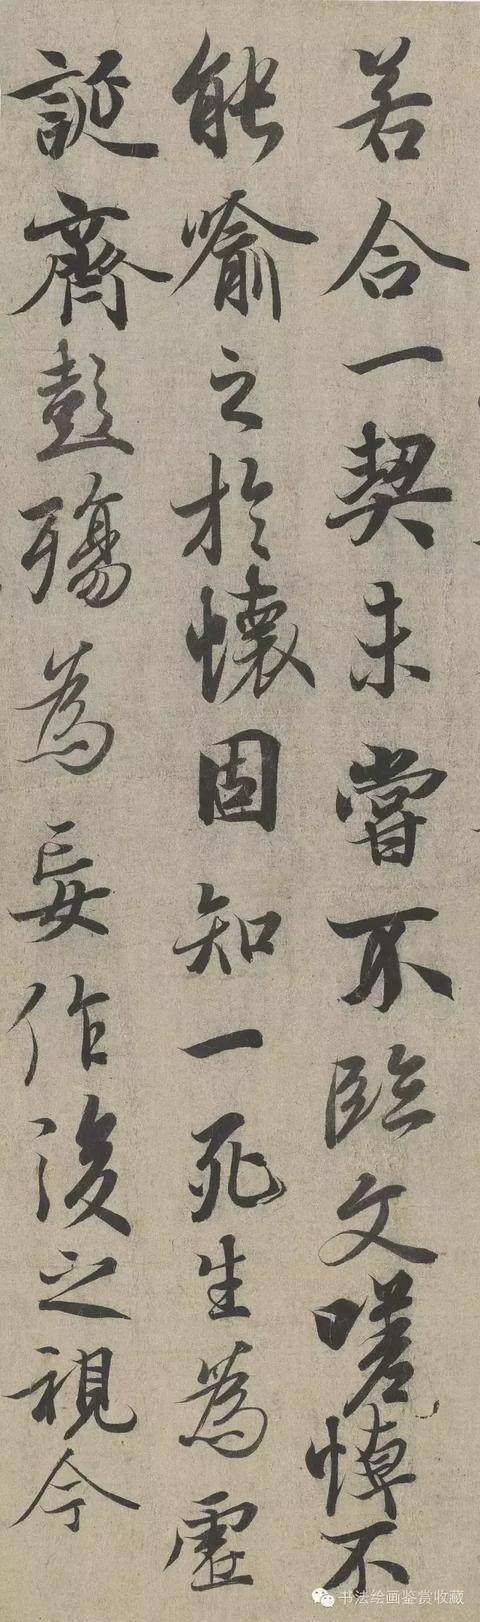 若合一契未嘗不臨文嗟悼不
能喻之於懷固知一死生為虛
誕齊彭殤為妄作後之視今
书法绘画鉴赏收藏